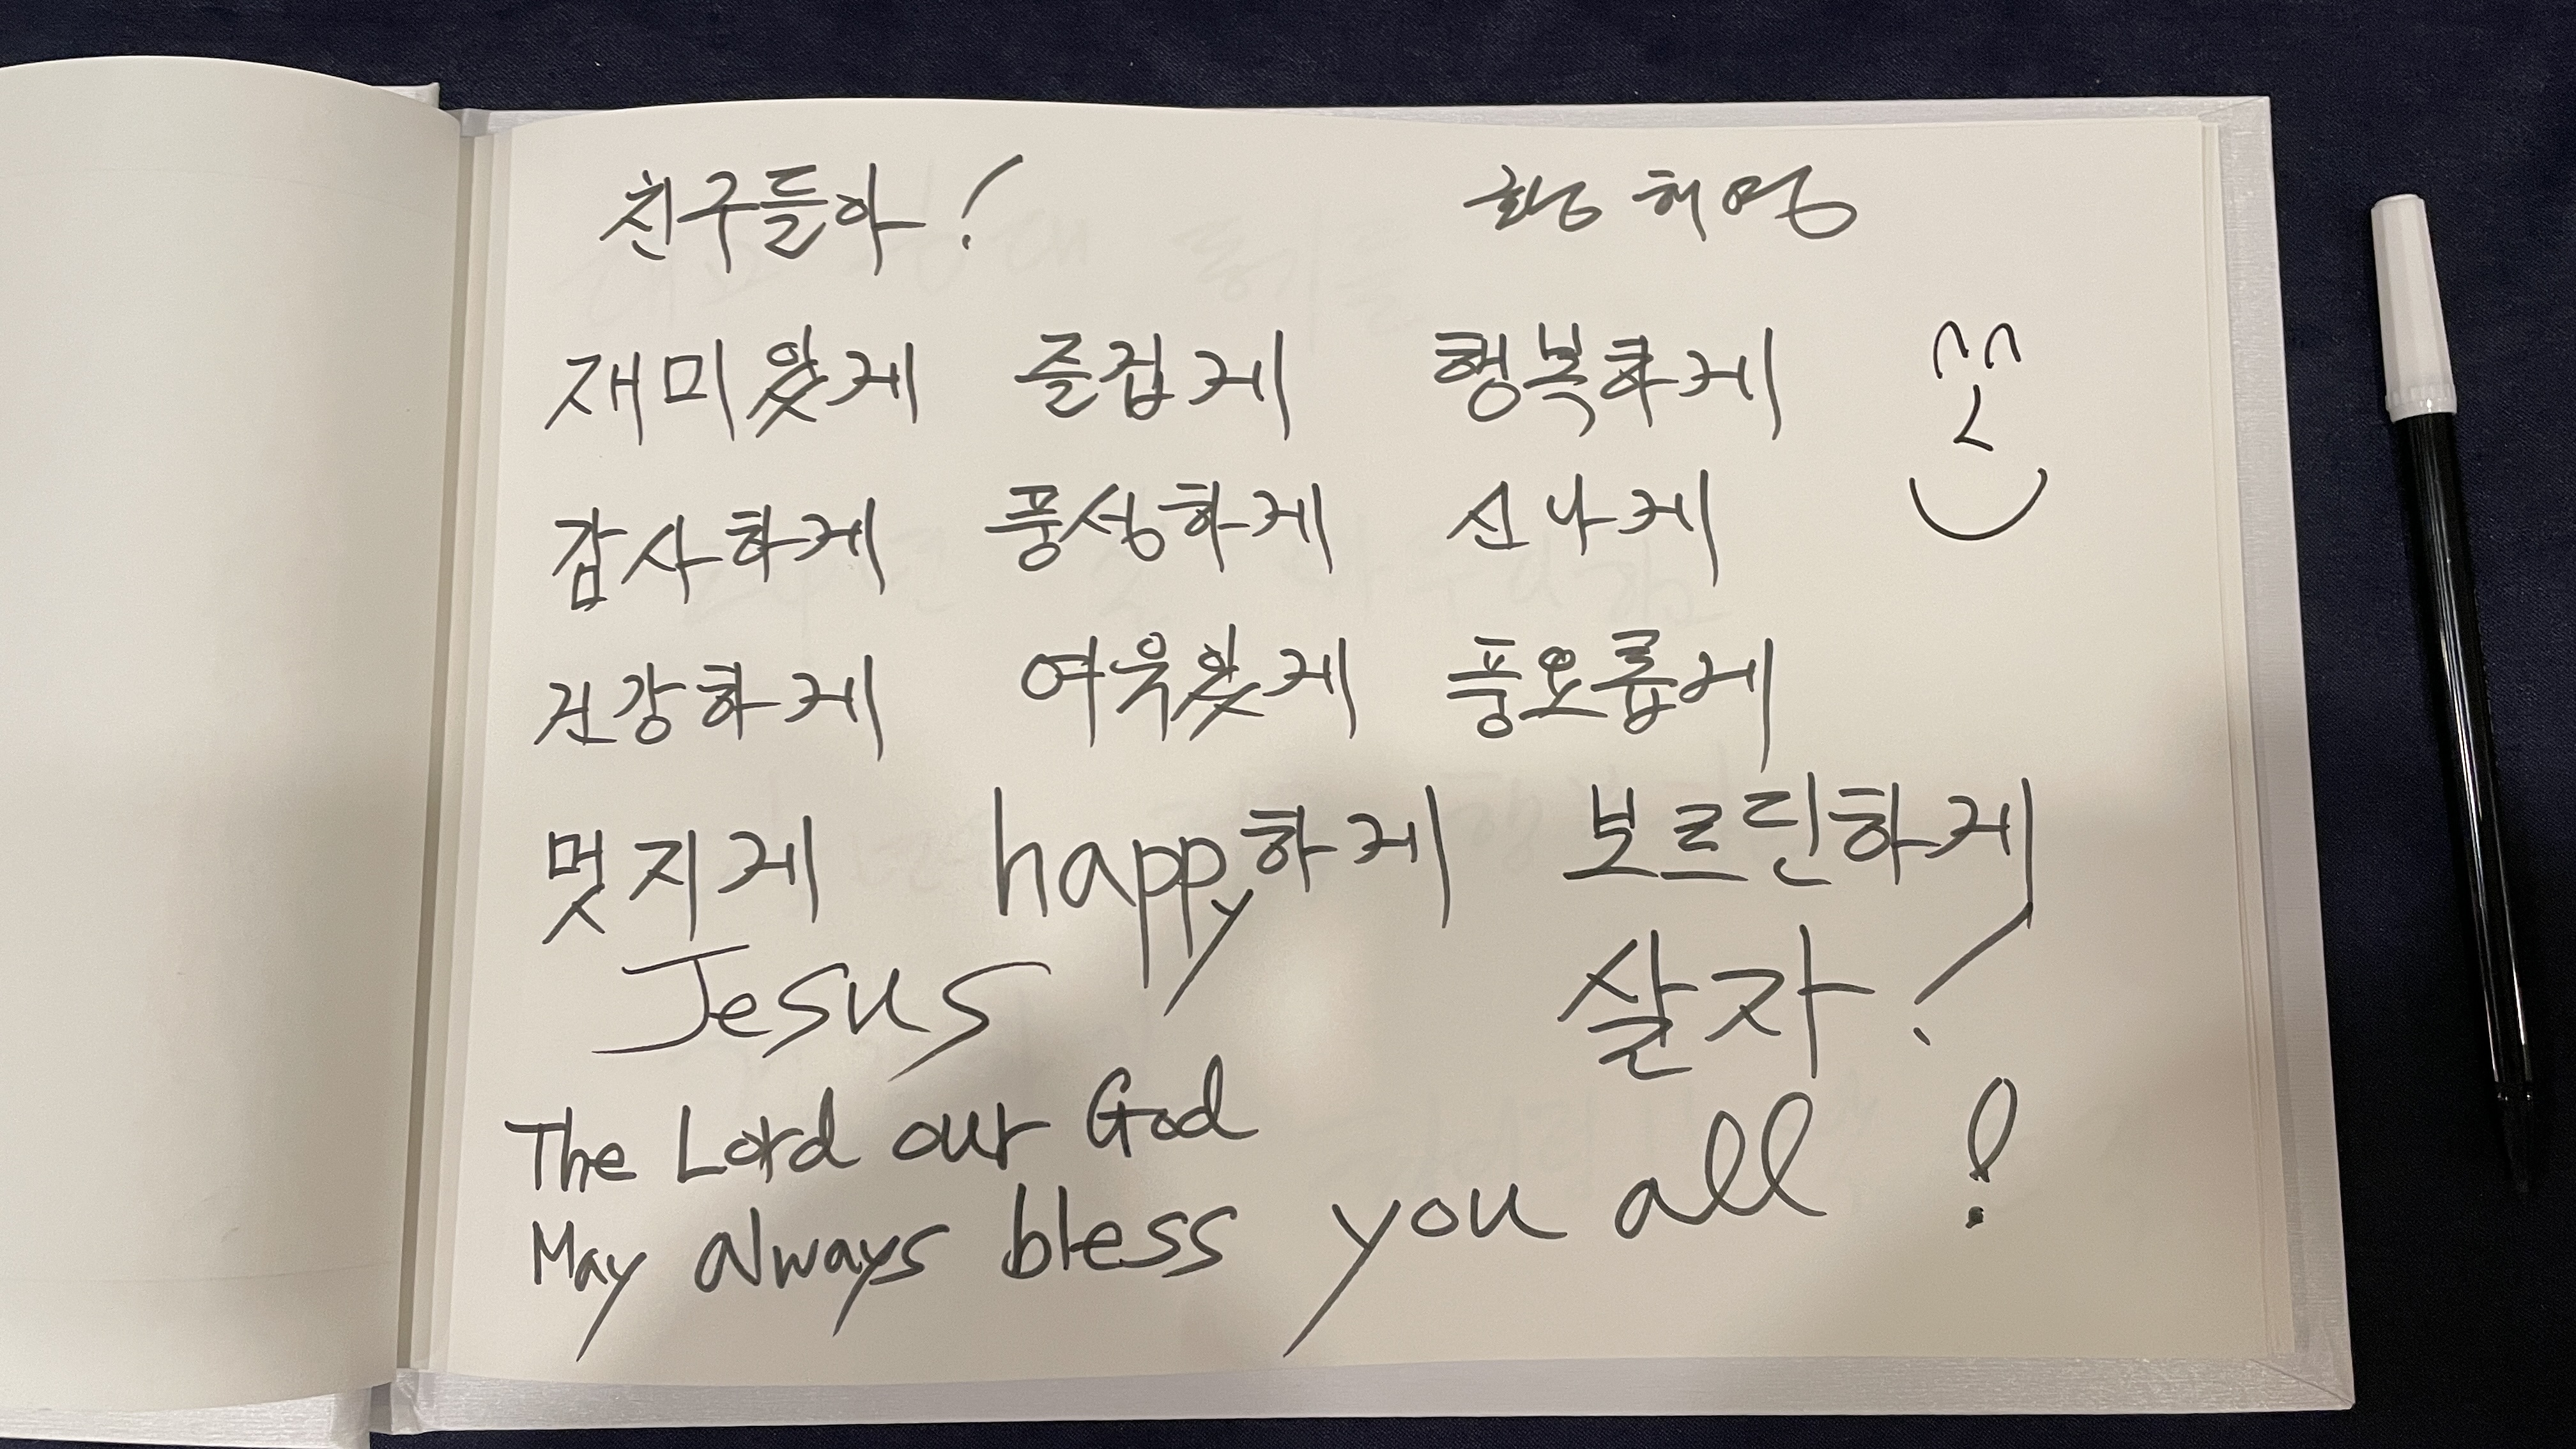 친구들아! 황해명
재미있게 즐겁게 행복하게
감사하게 풍성하게 신나게
건강하게 여유있게 풍요롭게
멋지게 happy하게 보르딘하게
Jesus 살자!
The Lord our God
May always bless you all!